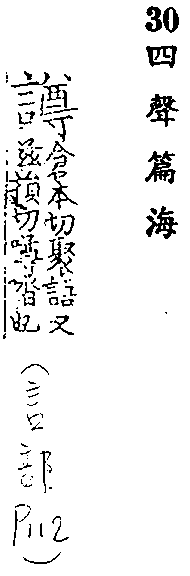 30
四聲篇海
譐倉本切聚語又
茲損切噂㗱也
(言部
P112)